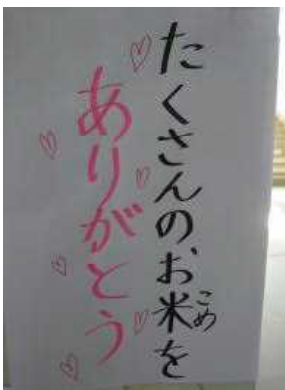 たくさんのお米を
こめ
ありがとう